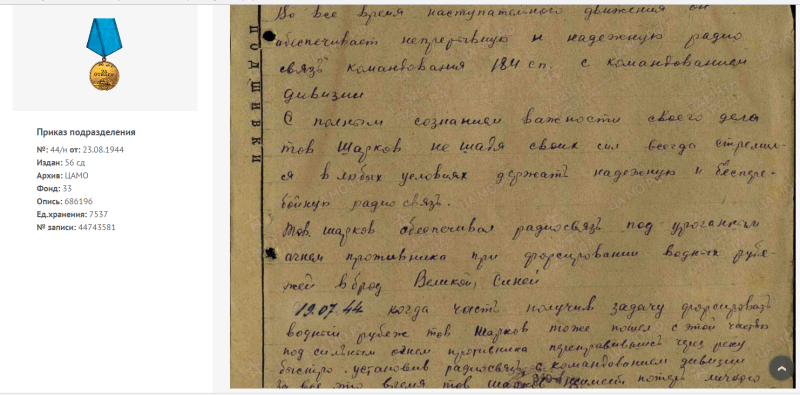 Во все время наступательного движения он
обеспечивает непрерывную и надежную радио
связь командования 184 сп. с командованием
дивизии
С полным сознанием важности своего дела
тов Шарков не щадя своих сил всегда стремил-
ся в любых условиях держать надежную и беспере-
бойную радио связь.
Тов. Шарков обеспечивал радиосвязь под ураганным
огнем противника при форсировании водных рубе-
жей вброд Великой, Синей
19.07.44 когда часть получив задачу форсировать
водный рубеж тов Шарков тоже пошел с этой частью
под сильным огнем противника переправившись через реку
быстро установив радиосвязь с командованием дивизии
За все это время тов Шарков потерь личного
ПОДШИВКИ
За отвагу
Приказ подразделения
№: 44/н от: 23.08.1944
Издан: 56 сд
Архив: ЦАМО
Фонд: 33
Опись: 686196
Ед.хранения: 7537
№ записи: 44743581